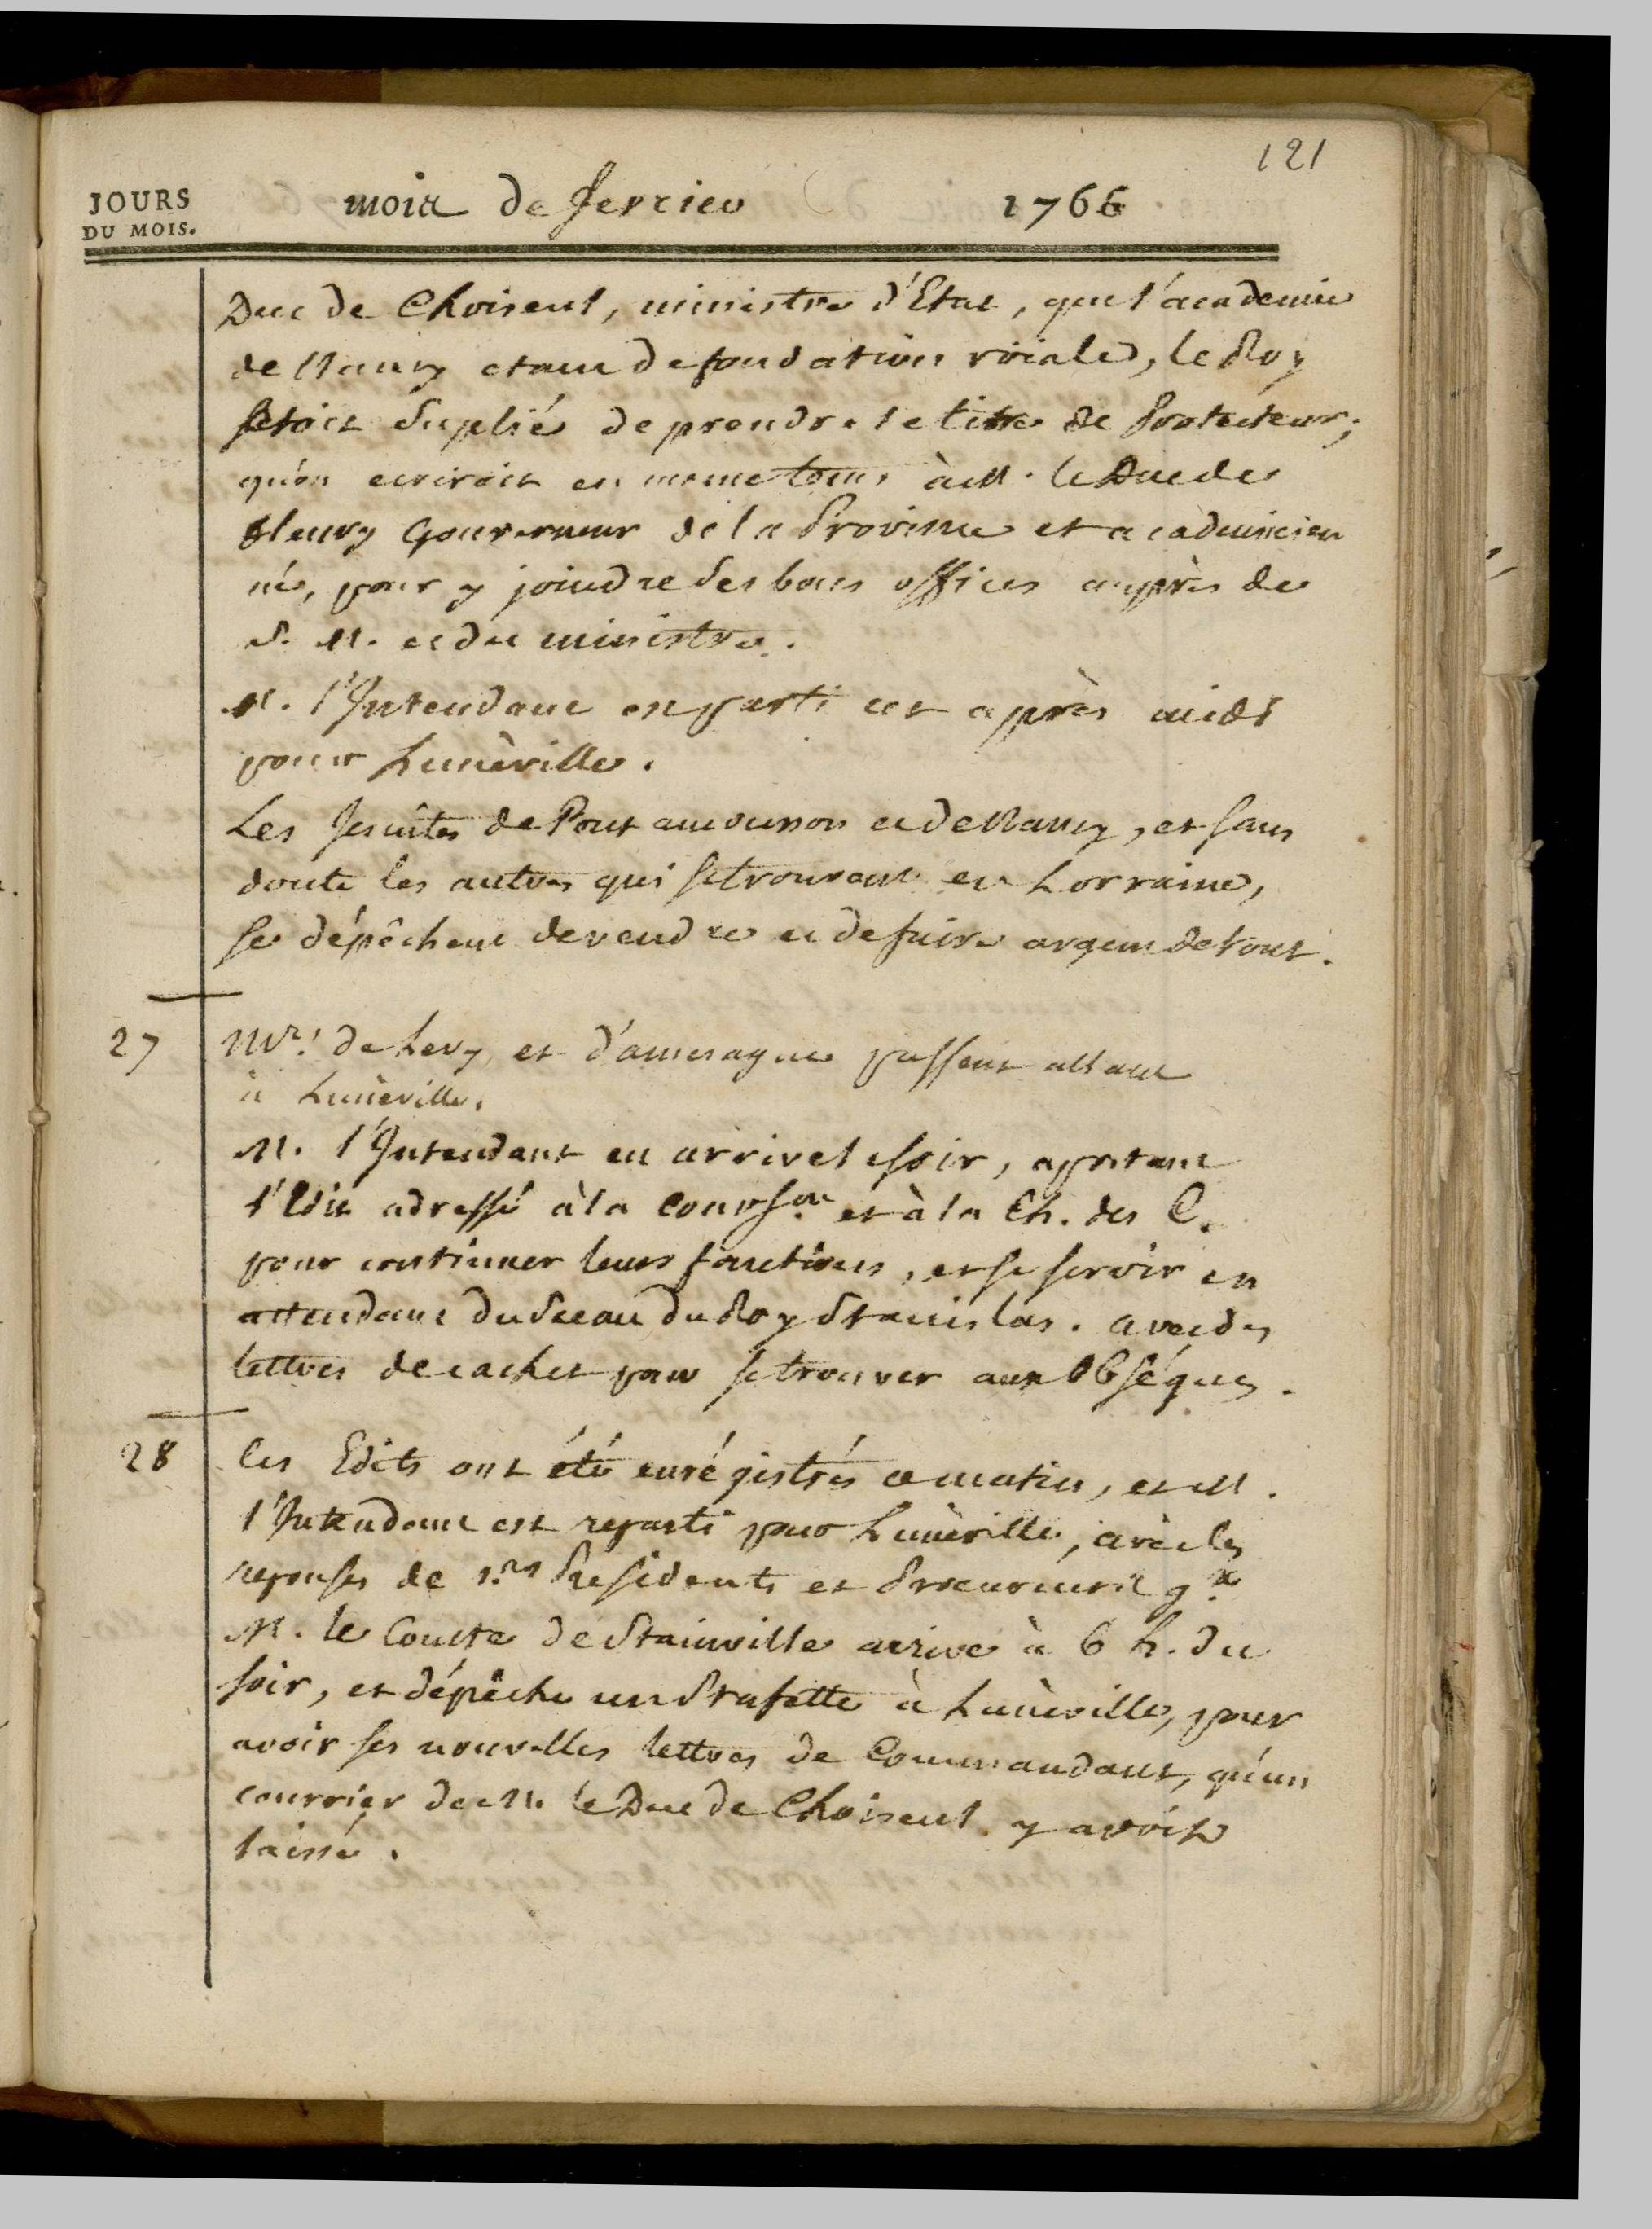 121
JOURS
DU MOIS.
mois de fevrier 1766
Duc de Choiseul, ministre d'Etat, que l'academie
de Nancy etant de fondation roiale, le Roy
seroit suplié de prendre le titre de Protecteur;
qu'on ecriroit en meme tems à M. le Duc de
fleury Gouverneur de la Province et academicien
né, pour y joindre ses bons offices auprès de
S. M. et du ministre.
M. l'Intendant est parti cet après midi
pour Lunèville.
Les Jesuites de Pont amousson et de Nancy, et sans
doute les autres qui se trouvent en Lorraine,
se dépêchent de vendre et de faire argent de tout.
27
Mrs. de Levy et d'amezague passent allant
à Lunèville.
M. l'Intendant en arrive le soir, aportant
l'Edit adressé à la Cour sne et à la Ch. des C.
pour continuer leurs fonctions, et se servir en
attendant du Sceau du Roy Stanislas. avec des
lettres de cachet pour se trouver aux Obséques.
28
les Edits ont été enrégistrés ce matin, et M.
l'Intendant est reparti pour Lunèville, avec les
reponses de 1.ers Presidents et Procureurs gx.
M. le Comte de Stainville arrive à 6 h. du
soir, et dépêche un Stafette à Lunèville, pour
avoir ses nouvelles lettres de Commandant, qu'un
courrier de M. le Duc de Choiseul y avoit
laissé.